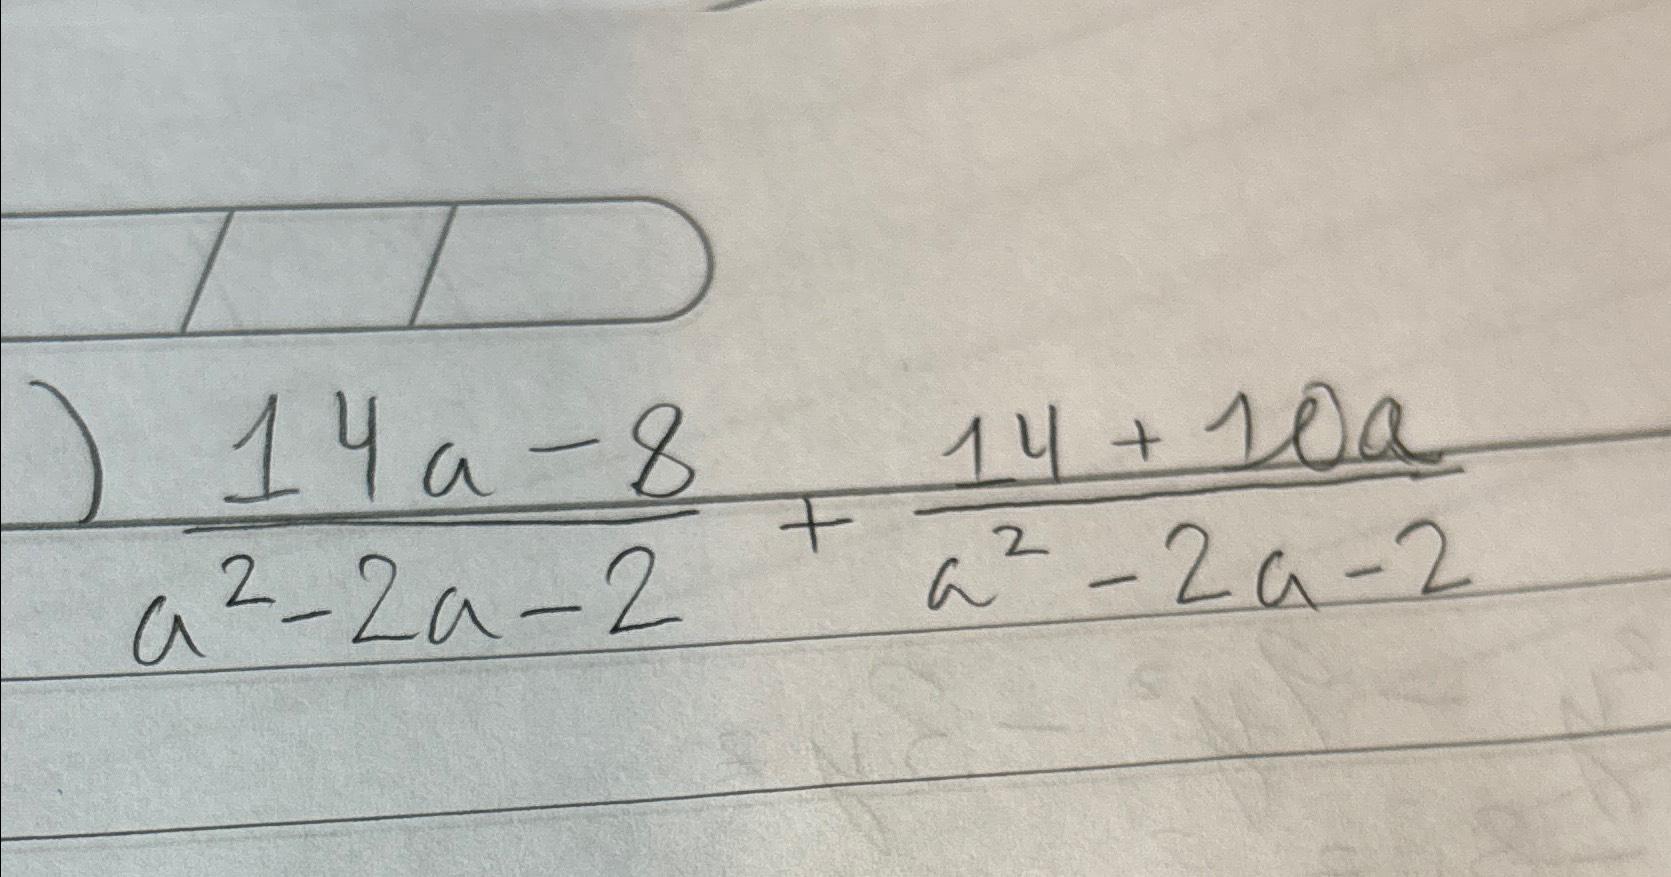 ) 14a - 8 / a² - 2a - 2 + 14 + 10a / a² - 2a - 2